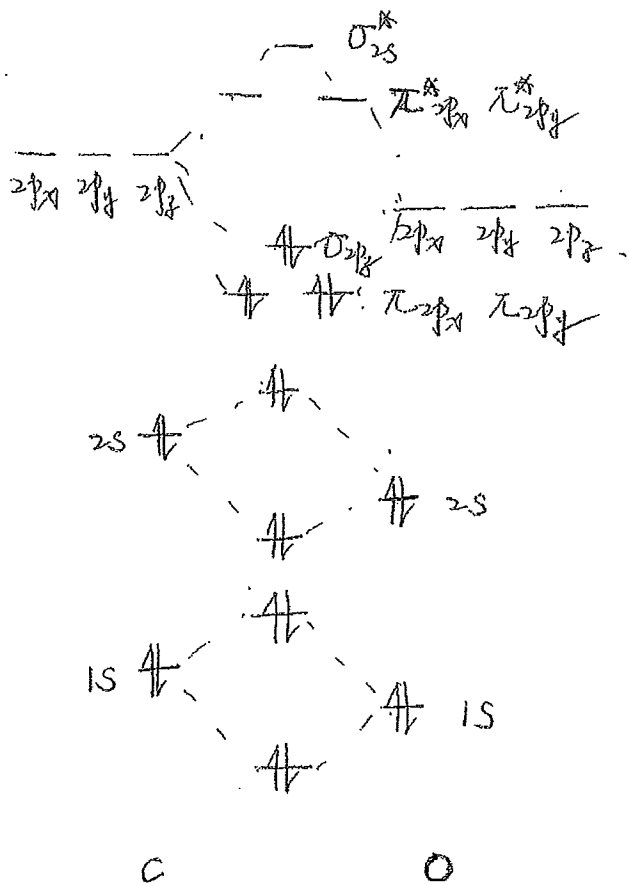 σ*2s
π*2px π*2py
2px 2py 2pz
2px 2py 2pz
σ2pz
π2px π2py
2s
2s
1s
1s
C O